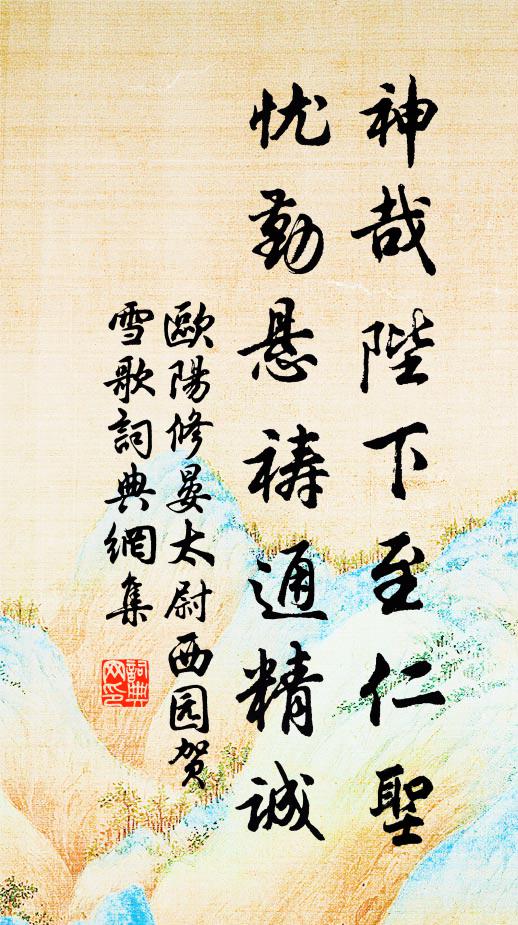 神哉陛下至仁聖
忧勤悬祷通精誠
歐陽修晏太尉西园贺
雪歌詞典網集
詞典网印